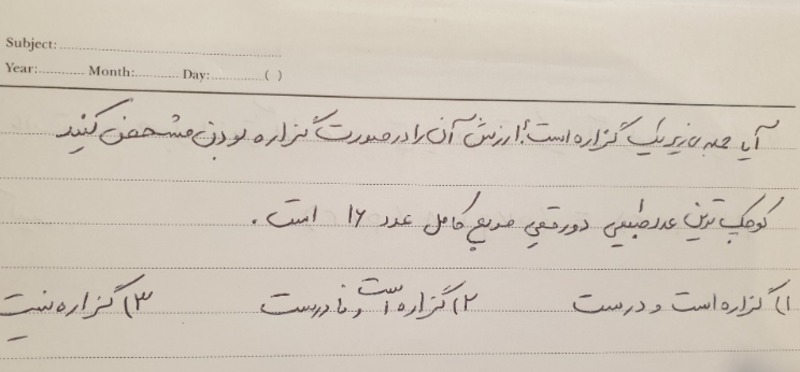 Subject:
Year: Month: Day: ( )
آیا جمله زیر یک گزاره است؟ ارزش آن را در صورت گزاره بودن مشخص کنید
کوچک ترین عدد طبیعی دو رقمی مربع کامل عدد ۱۶ است .
۱) گزاره است و درست ۲) گزاره است و نادرست ۳) گزاره نیست